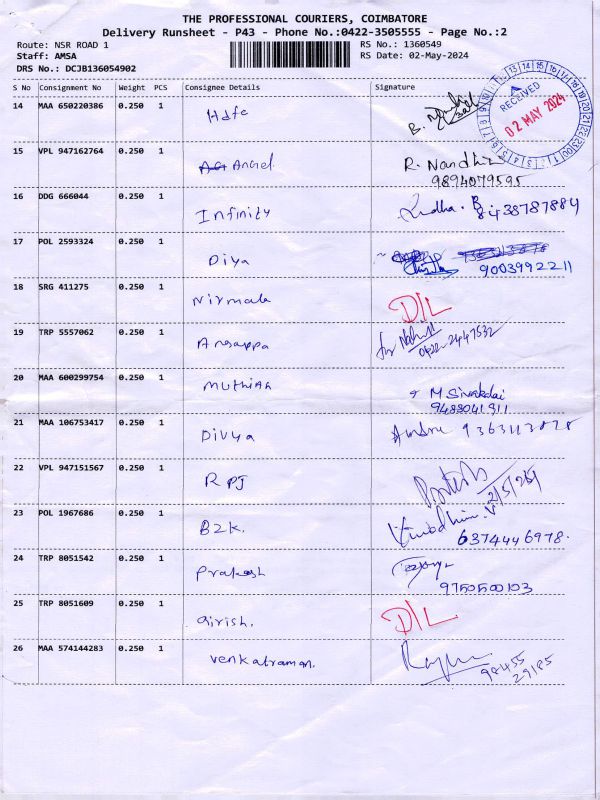 THE PROFESSIONAL COURIERS, COIMBATORE
Delivery Runsheet - P43 - Phone No.:0422-3505555 - Page No.:2
Route: NSR ROAD 1
Staff: AMSA
DRS No.: DCJB136054902
RS No.: 1360549
RS Date: 02-May-2024
RECEIVED
02 MAY 2024
S No Consignment No Weight PCS Consignee Details Signature
14 MAA 650220386 0.250 1 Hdfc
15 VPL 947162764 0.250 1 Angel. R. Nandhini
9894079595
16 DDG 666044 0.250 1 Infinity Sudha. B
8438787884
17 POL 2593324 0.250 1 Diya
9003992211
18 SRG 411275 0.250 1 Nirmala D/L
19 TRP 5557062 0.250 1 Angappa for
0422-2447532
20 MAA 600299754 0.250 1 Muthiah M Sivakdai
9488041911
21 MAA 106753417 0.250 1 Divya
22 VPL 947151567 0.250 1 RPJ
23 POL 1967686 0.250 1 B2K.
6374446978.
24 TRP 8051542 0.250 1 Prakash
9750500103
25 TRP 8051609 0.250 1 Girish. D/L
26 MAA 574144283 0.250 1 Venkatraman.
98455
29185